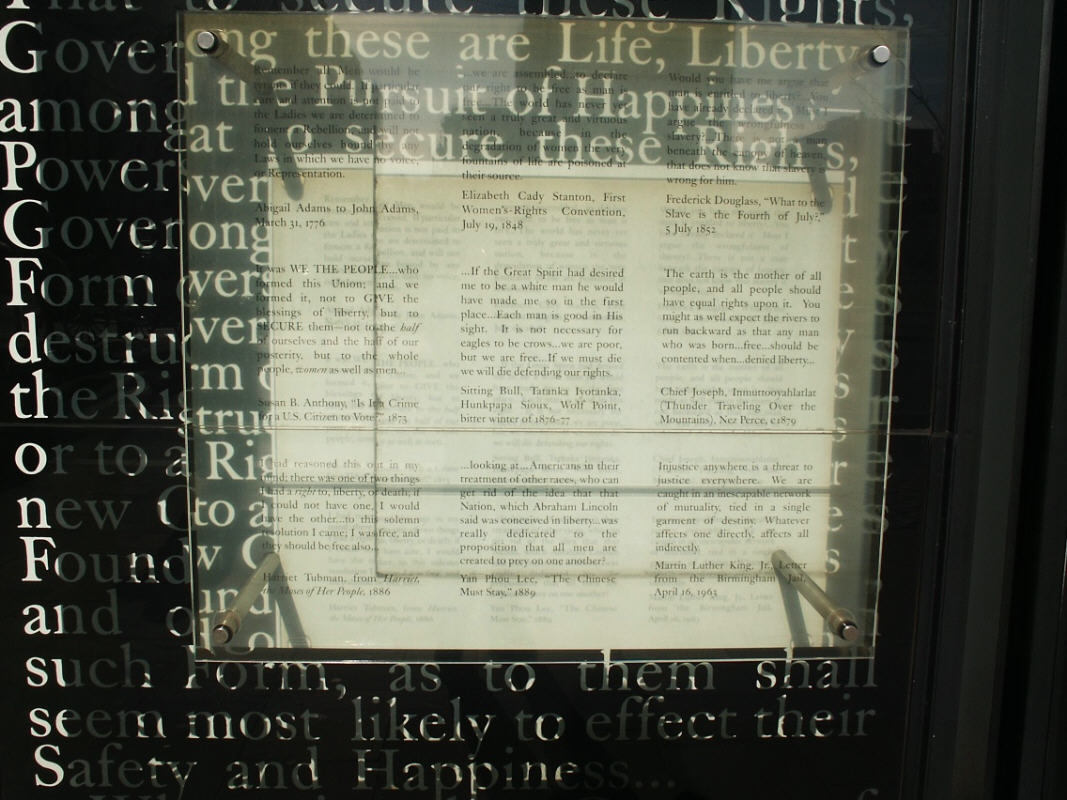 That to secure these Rights,
Govern
among
Power
Govern
Form
destru
the Rig
or to a
new
Found
and o
such Form, as to them shall
seem most likely to effect their
Safety and Happiness...
ong these are Life, Liberty
d the Pursuit of Happiness—
at to secure these Rights,
Remember all Men would be
tyrants if they could. If particular
care and attention is not paid to
the Ladies we are determined to
foment a Rebellion, and will not
hold ourselves bound by any
Laws in which we have no voice,
or Representation.
Abigail Adams to John Adams,
March 31, 1776
It was WE THE PEOPLE...who
formed this Union; and we
formed it, not to GIVE the
blessings of liberty, but to
SECURE them—not to the half
of ourselves and the half of our
posterity, but to the whole
people, women as well as men...
Susan B. Anthony, "Is It a Crime
for a U.S. Citizen to Vote?" 1873
I had reasoned this out in my
mind; there was one of two things
I had a right to, liberty, or death; if
I could not have one, I would
have the other...to this solemn
resolution I came; I was free, and
they should be free also...
Harriet Tubman, from Harriet,
the Moses of Her People, 1886
...we are assembled...to declare
our right to be free as man is
free...The world has never yet
seen a truly great and virtuous
nation, because in the
degradation of women the very
fountains of life are poisoned at
their source.
Elizabeth Cady Stanton, First
Women's-Rights Convention,
July 19, 1848
...If the Great Spirit had desired
me to be a white man he would
have made me so in the first
place...Each man is good in His
sight. It is not necessary for
eagles to be crows...we are poor,
but we are free...If we must die
we will die defending our rights.
Sitting Bull, Tatanka Iyotanka,
Hunkpapa Sioux, Wolf Point,
bitter winter of 1876-77
...looking at...Americans in their
treatment of other races, who can
get rid of the idea that that
Nation, which Abraham Lincoln
said was conceived in liberty...was
really dedicated to the
proposition that all men are
created to prey on one another?
Yan Phou Lee, "The Chinese
Must Stay," 1889
Would you have me argue that
man is entitled to liberty?...You
have already declared it. Must I
argue the wrongfulness of
slavery?...There is not a man
beneath the canopy of heaven,
that does not know that slavery is
wrong for him.
Frederick Douglass, "What to the
Slave is the Fourth of July?,"
5 July 1852
The earth is the mother of all
people, and all people should
have equal rights upon it. You
might as well expect the rivers to
run backward as that any man
who was born...free...should be
contented when...denied liberty...
Chief Joseph, Inmuttooyahlatlat
(Thunder Traveling Over the
Mountains), Nez Perce, c1879
Injustice anywhere is a threat to
justice everywhere. We are
caught in an inescapable network
of mutuality, tied in a single
garment of destiny. Whatever
affects one directly, affects all
indirectly.
Martin Luther King, Jr., Letter
from the Birmingham Jail,
April 16, 1963